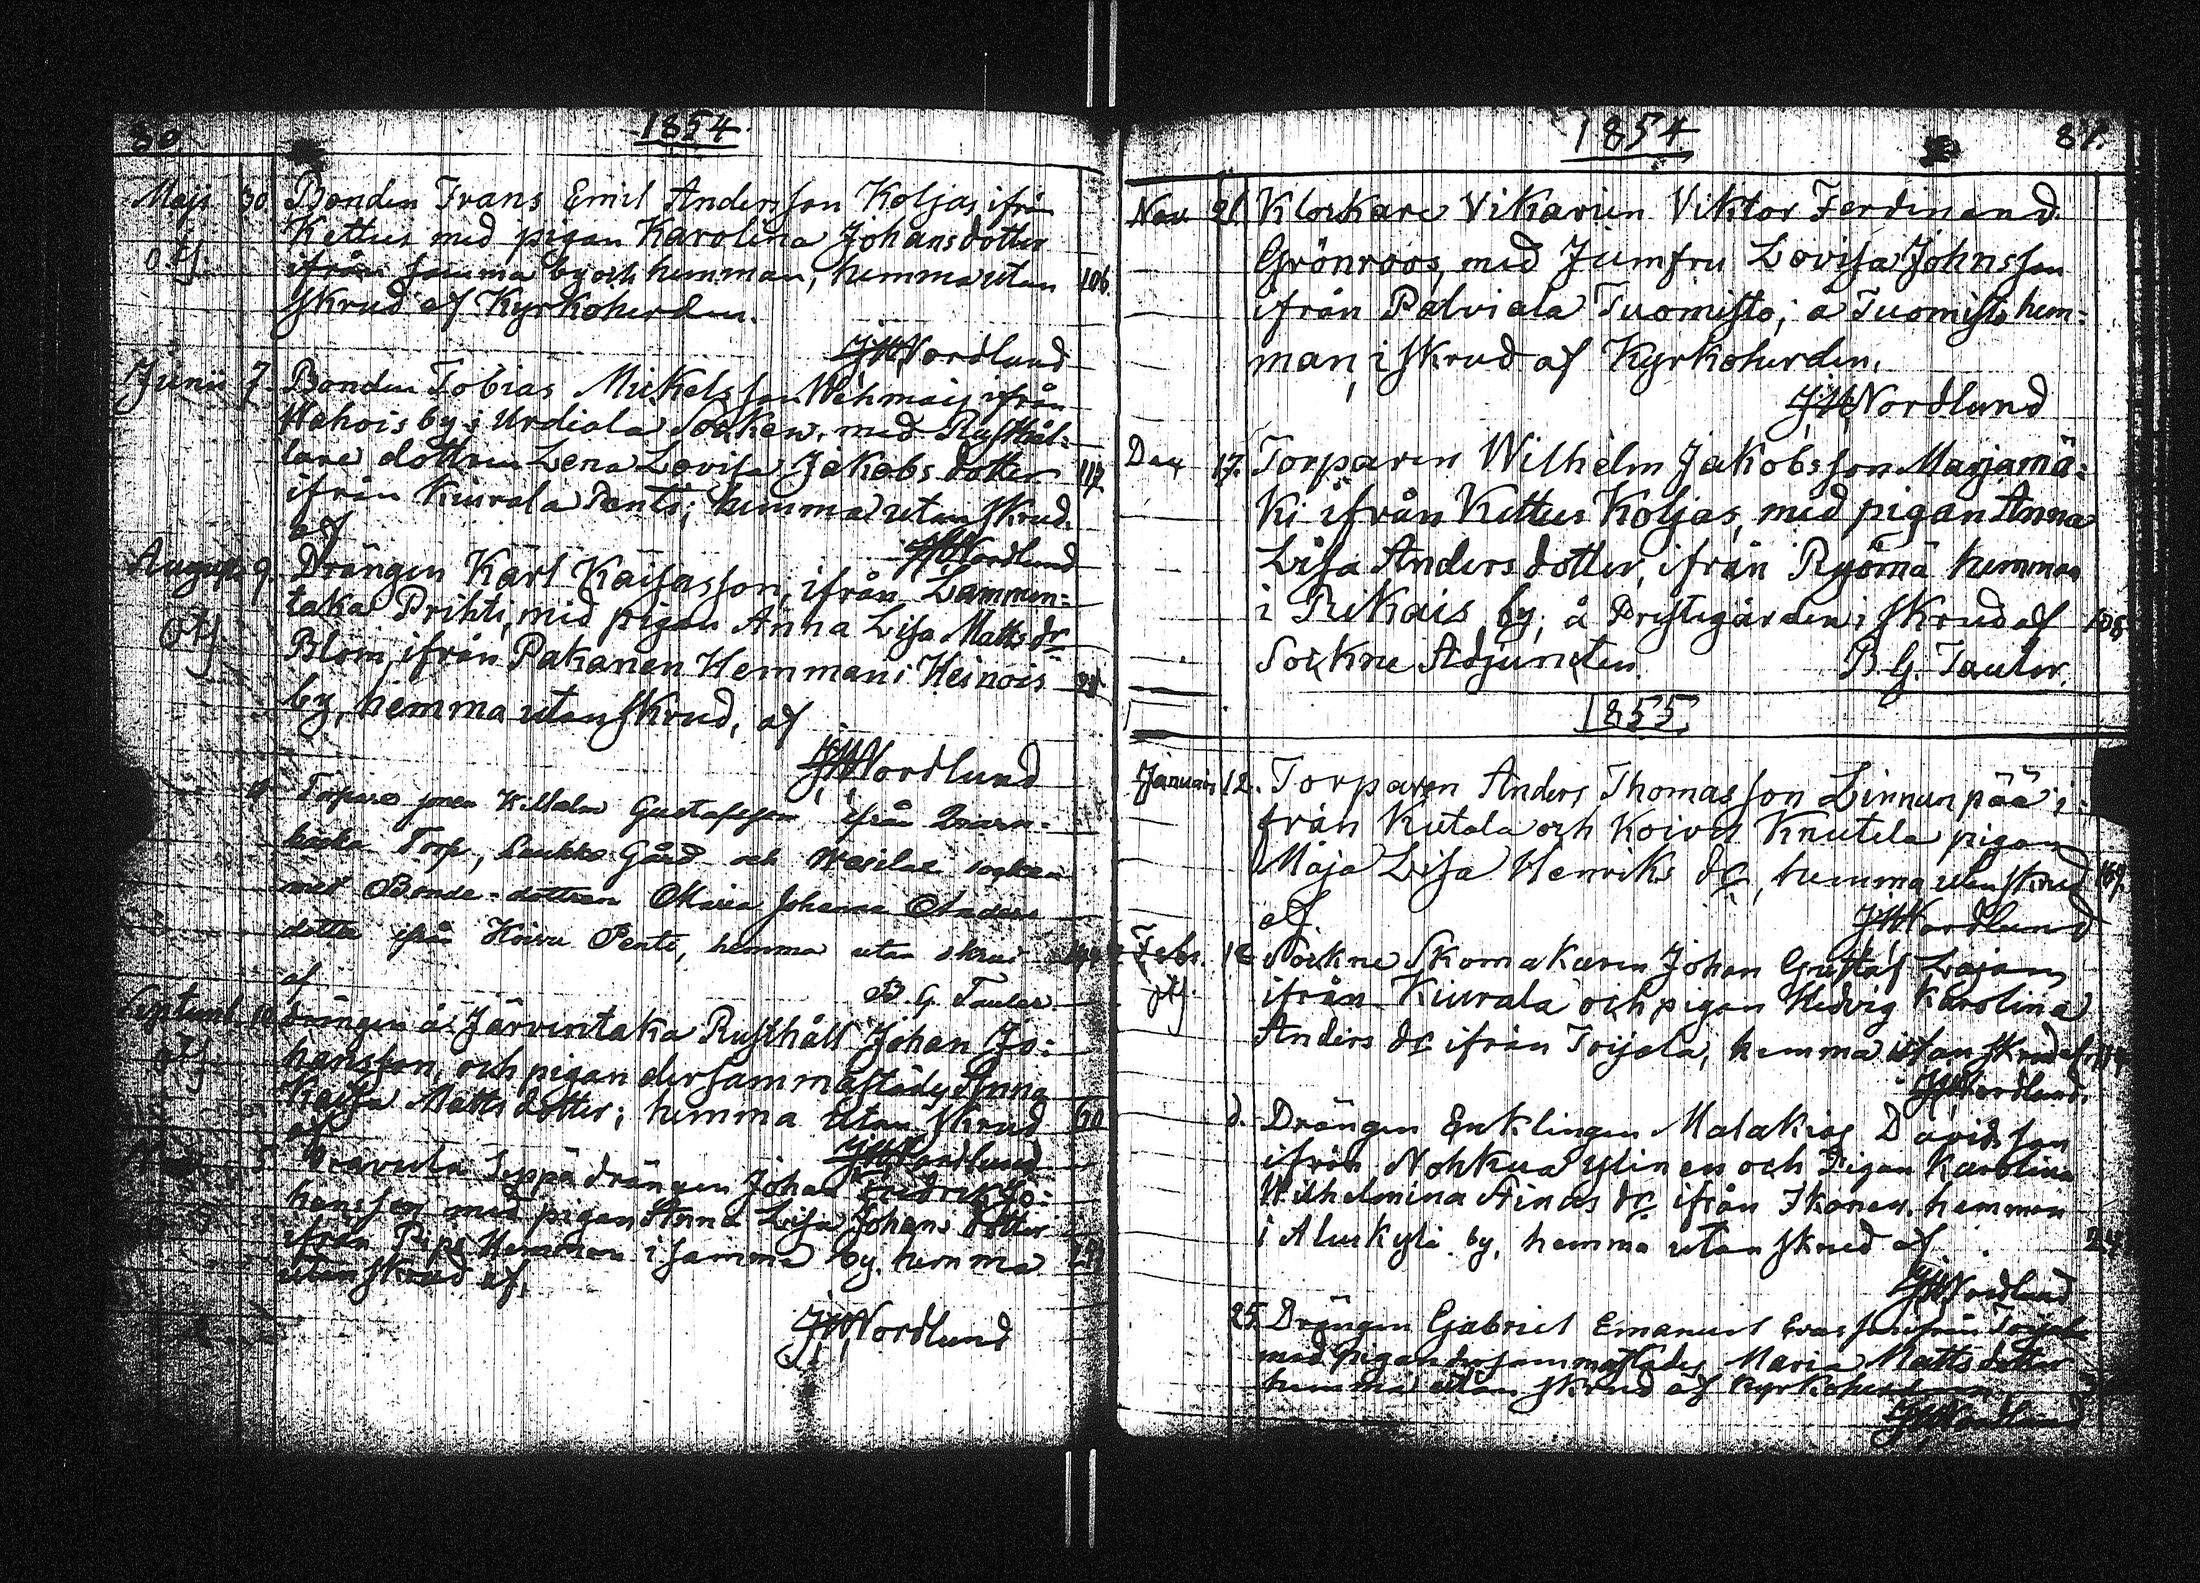 80 1854
Maji 30 Bonden Frans Emil Andersson Koljas ifrån
Kettus med pigan Karolina Johansdotter
otf. ifrån samma by och hemman, hemma utan 106.
skrud af Kyrkoherden.
JWNordlund
Junii 7. Bonden Tobias Mickelsson Wehmais ifrån
Wahois by i Urdiala Socken, med Rusthål-
lare dottren Lena Lovisa Jakobs dotter 117
ifrån Kiurala Penti; hemma utan skrud.
af JWNordlund
Augusti 9. Drängen Karl Kaisasson, ifrån Lammen-
taka Prihti, med pigan Anna Lisa Matts dr
otf. Blom, ifrån Pakanen Hemman i Heinois
by, hemma utan skrud, af
JWNordlund
Torpare sonen Wilhelm Gustafsson ifrån
Torp, Laukko Gård och Wesilax socken
med Bonde-dottren Maria Johanna Anders
dotter ifrån Hoivu Penti, hemma utan skrud
af B. G. Tauler
Septemb. 10 drängen å Järventaka Rusthåll Johan Jo-
otf. hansson, och pigan dersammastädes Anna
Kaisa Matts dotter; hemma utan skrud 60
af JWNordlund
5 Seppä drängen Johan Jo-
hansson med pigan Anna Lisa Johans dotter
ifrån Hemman i samma by, hemma
utan skrud af.
JWNordlund
1854 81.
Nov 21. Klockare Vikarien Viktor Ferdinand
Grönroos, med Jumfru Lovisa Johnsson
ifrån Palviala Tuomisto; å Tuomisto hem-
man, i skrud af Kyrkoherden.
JWNordlund
Dec 17. Torparen Wilhelm Jakobsson Marjamä-
ki ifrån Kettus Koljas, med pigan Anna
Lisa Anders dotter, ifrån Ryömä hemman
i Rikais by; å Prestegården i skrud af 106.
Sockne Adjuncten. B. G. Tauler.
1855
Januari 12. Torparen Anders Thomasson Linnunpää i-
från Kutala och Koivu Knutila pigan
Maja Lisa Henriks dr, hemma utan skrud
af JWNordlund
Febr. Sockne Skomakaren Johan Gustaf Lajan
otf. ifrån Kiurala och pigan Hedvig Karolina
Anders dr ifrån Toijola, hemma utan skrud af
JWNordlund.
d. Drängen Enklingen Malakias Davidsson
ifrån Nohkua Ylinen och Pigan Karolina
Wilhelmina dr ifrån Ikonen hemman
i Aluskylä by, hemma utan skrud af 24.
JWNordlund
25. Drängen Gabriel Emanuel ifrån
med pigan dersammastädes Maria Matts dotter
hemma utan skrud af Kyrkoherden
JWNordlund